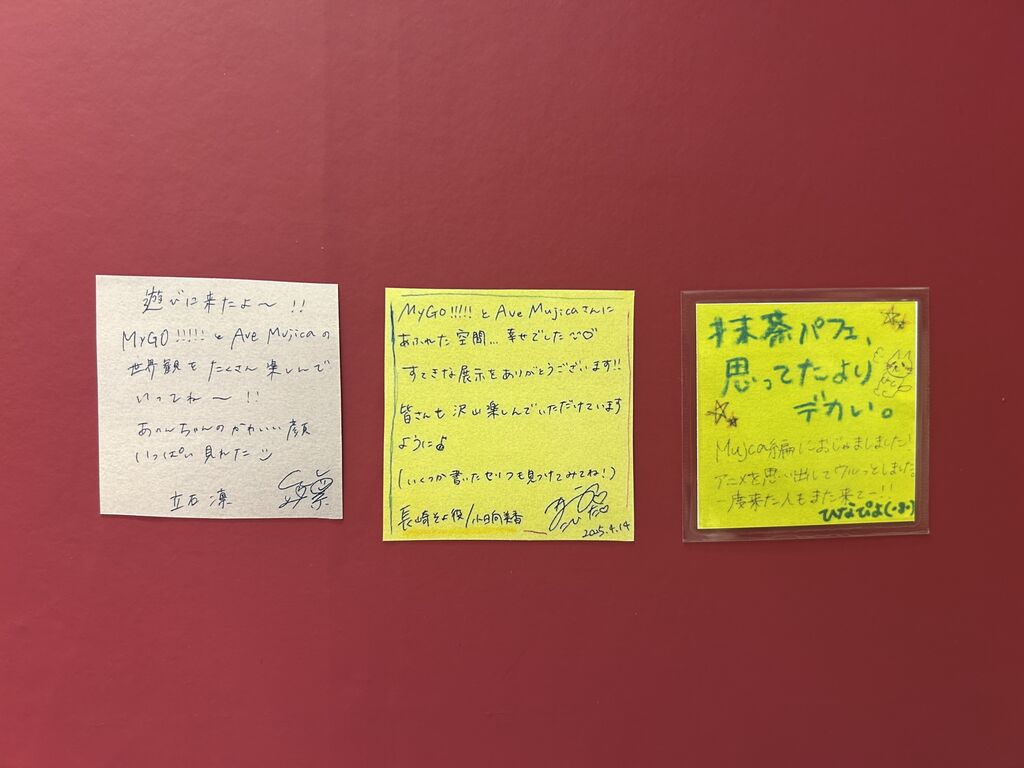 遊びに来たよ〜 !!
MyGO!!!!!とAve Mujicaの
世界観をたくさん楽しんで
いってね〜 !!
あのんちゃんのかわいい顔
いっぱい見れた
立石 凛
MyGO!!!!!とAve Mujicaさんに
あふれた空間... 幸せでした♡
すてきな展示をありがとうございます!!
皆さんも沢山楽しんでいただけています
ように♪
(いくつか書いたセリフも見つけてみてね!)
長崎そよ役/小日向美香
2025.4.14
抹茶パフェ、
思ってたより
デカい。
Mujica編におじゃましました!
アニメを思い出してウルっとしました
一度来た人もまた来てー!!
ひなぴよ(・8・)